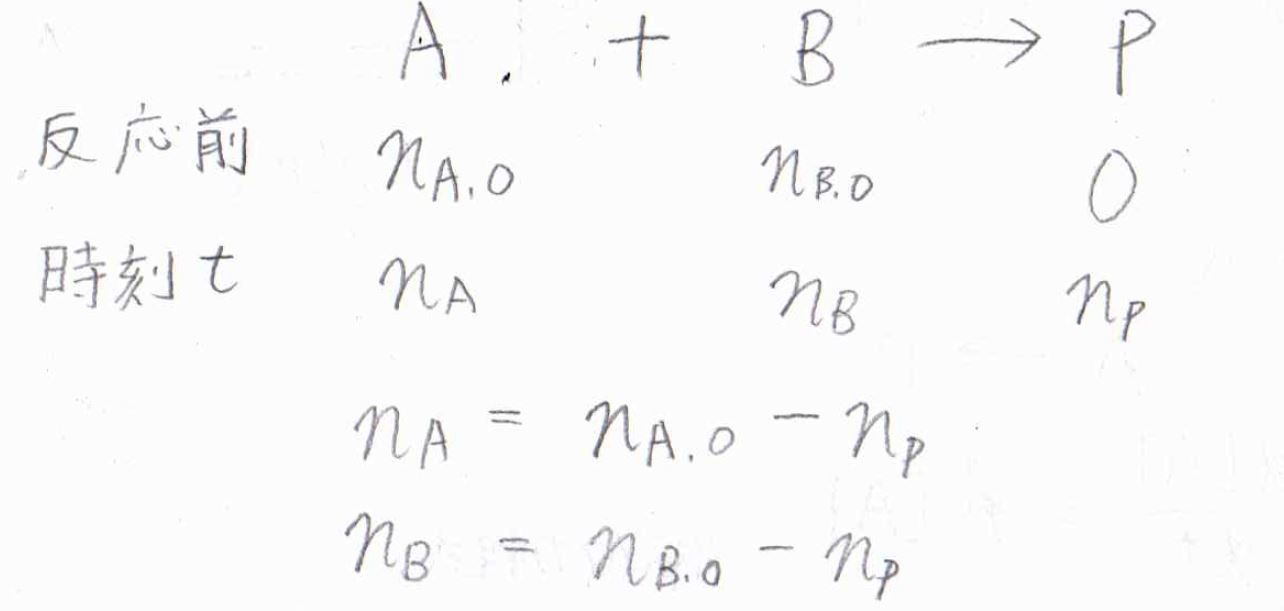 A + B → P
反応前 n_{A,0} n_{B,0} 0
時刻t n_A n_B n_P
n_A = n_{A,0} - n_P
n_B = n_{B,0} - n_P